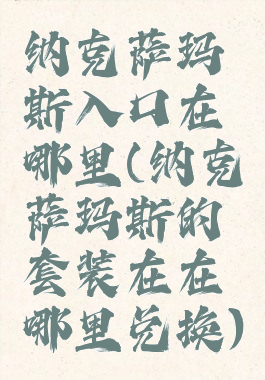 纳克萨玛
斯入口在
哪里(纳克
萨玛斯的
套装在在
哪里兑换)